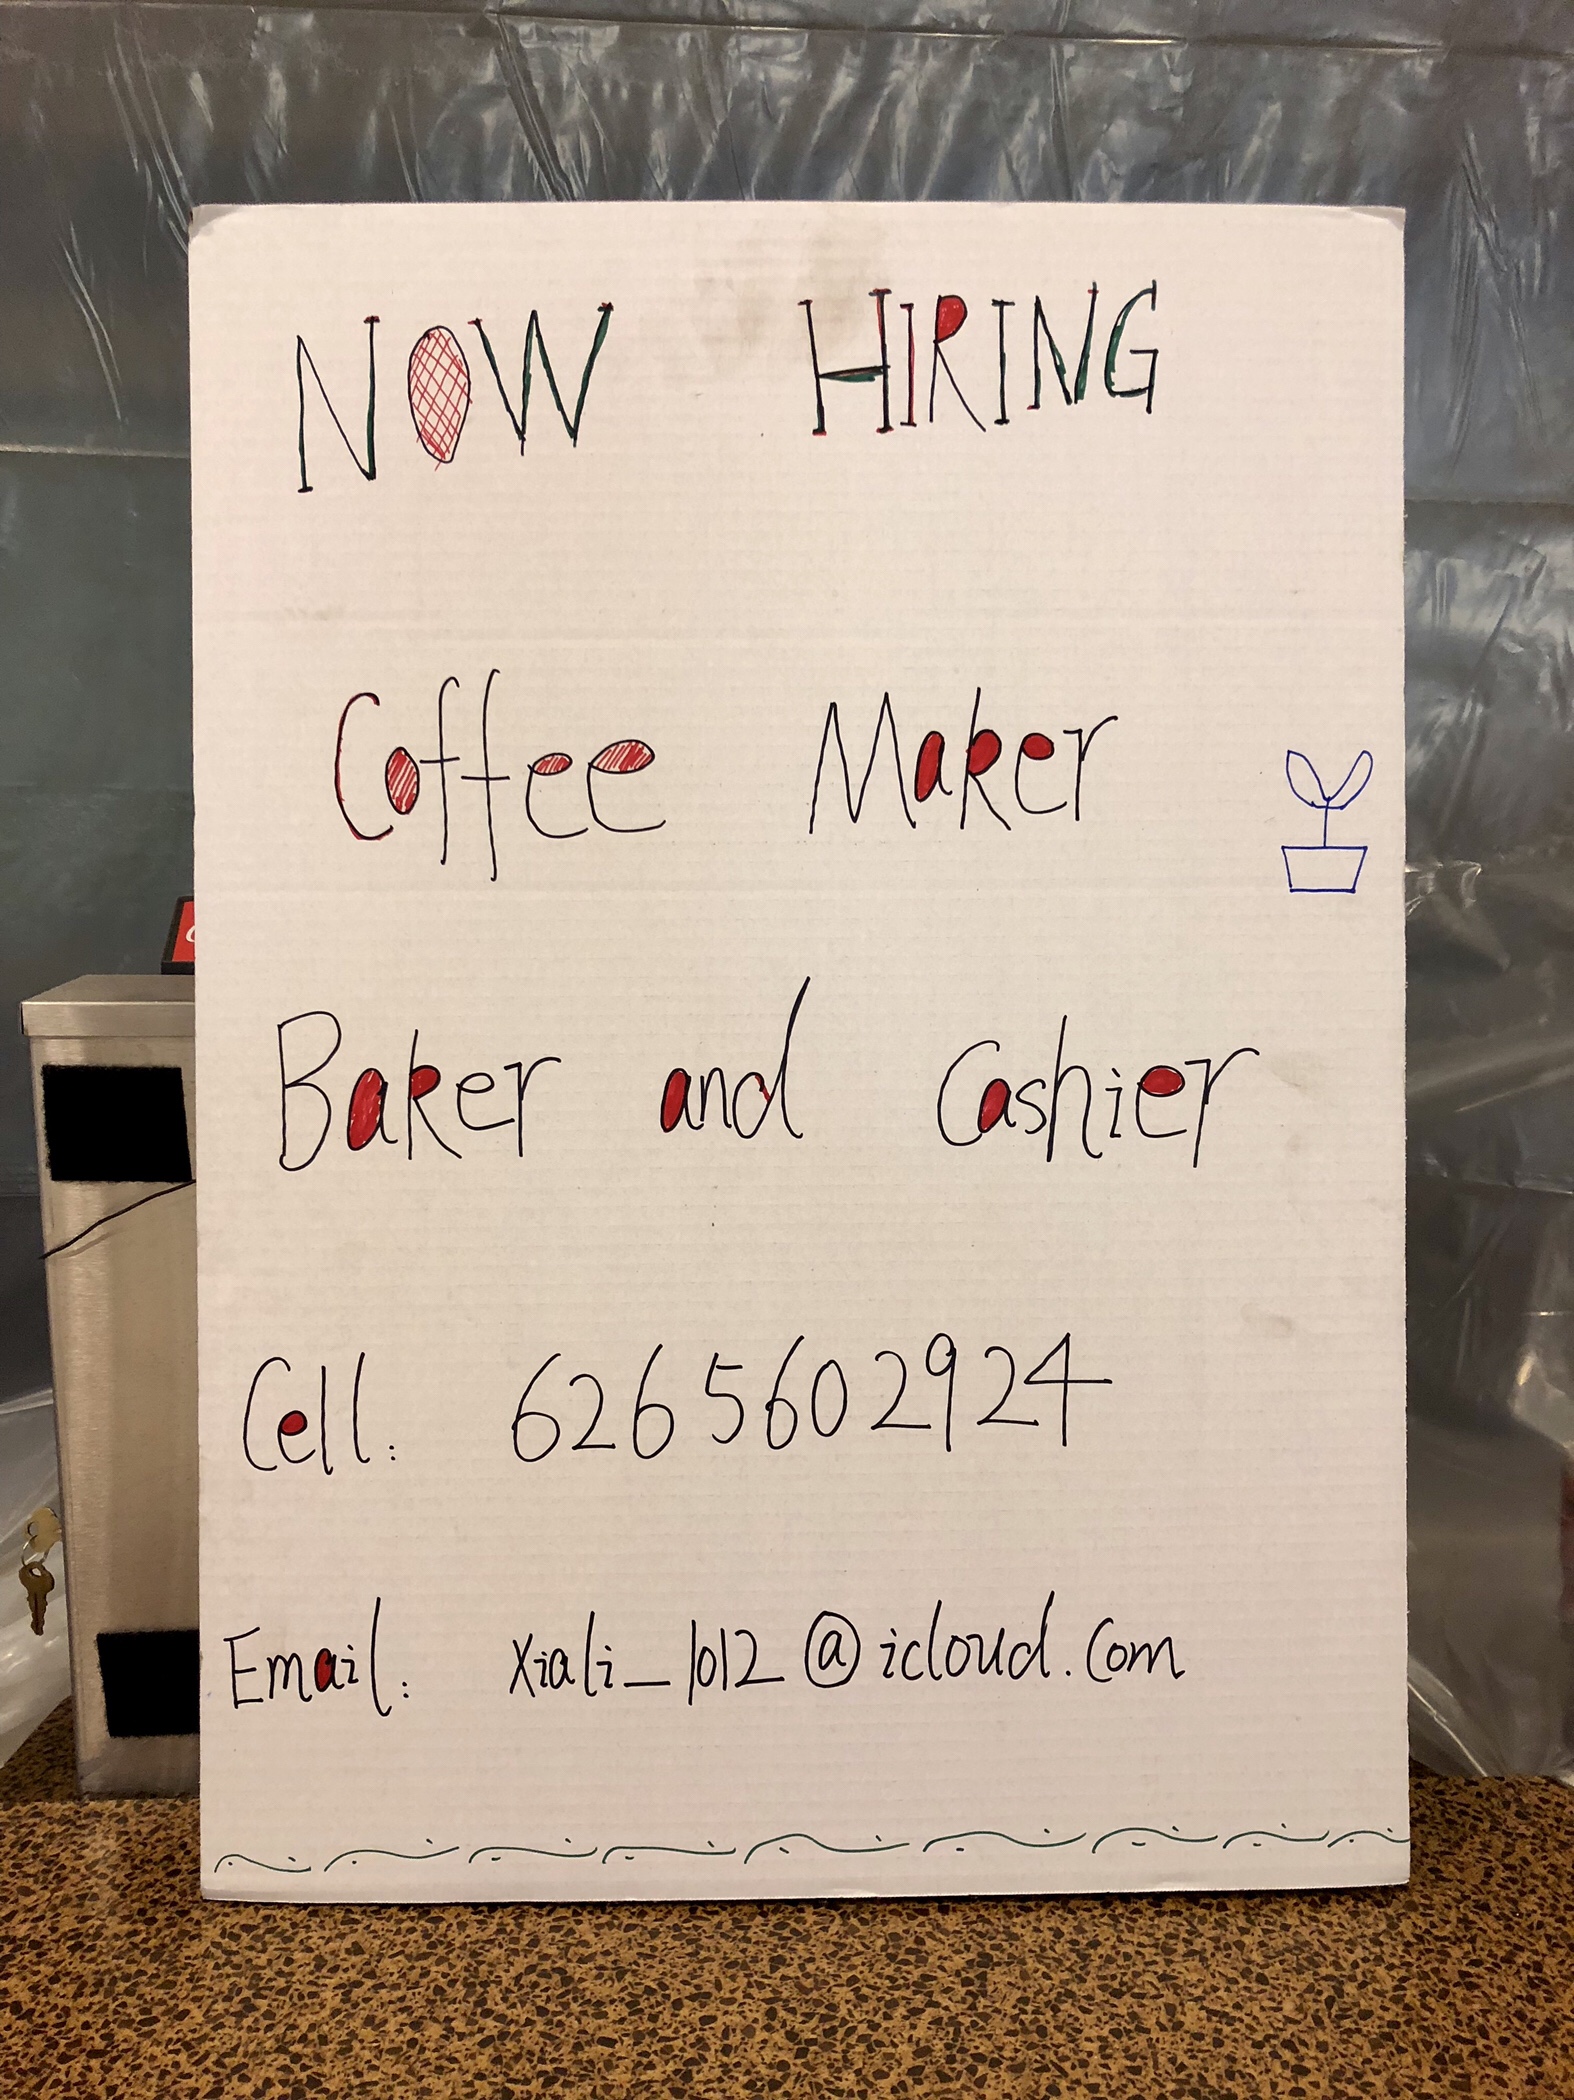 NOW HIRING
Coffee Maker
Baker and Cashier
Cell: 6265602924
Email: xiali_1012@icloud.com